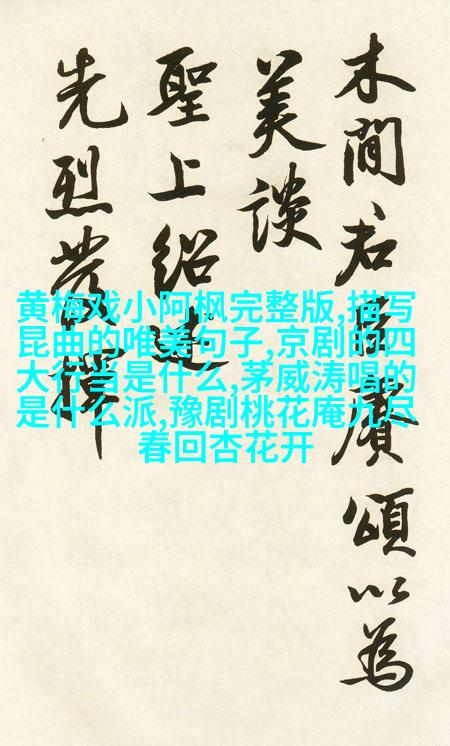 木間君臣賡頌以為
美談
聖上紹述
先烈
黄梅戏小阿枫完整版,描写
昆曲的唯美句子,京剧的四
大行当是什么,茅威涛唱的
是什么派,豫剧桃花庵九尽
春回杏花开